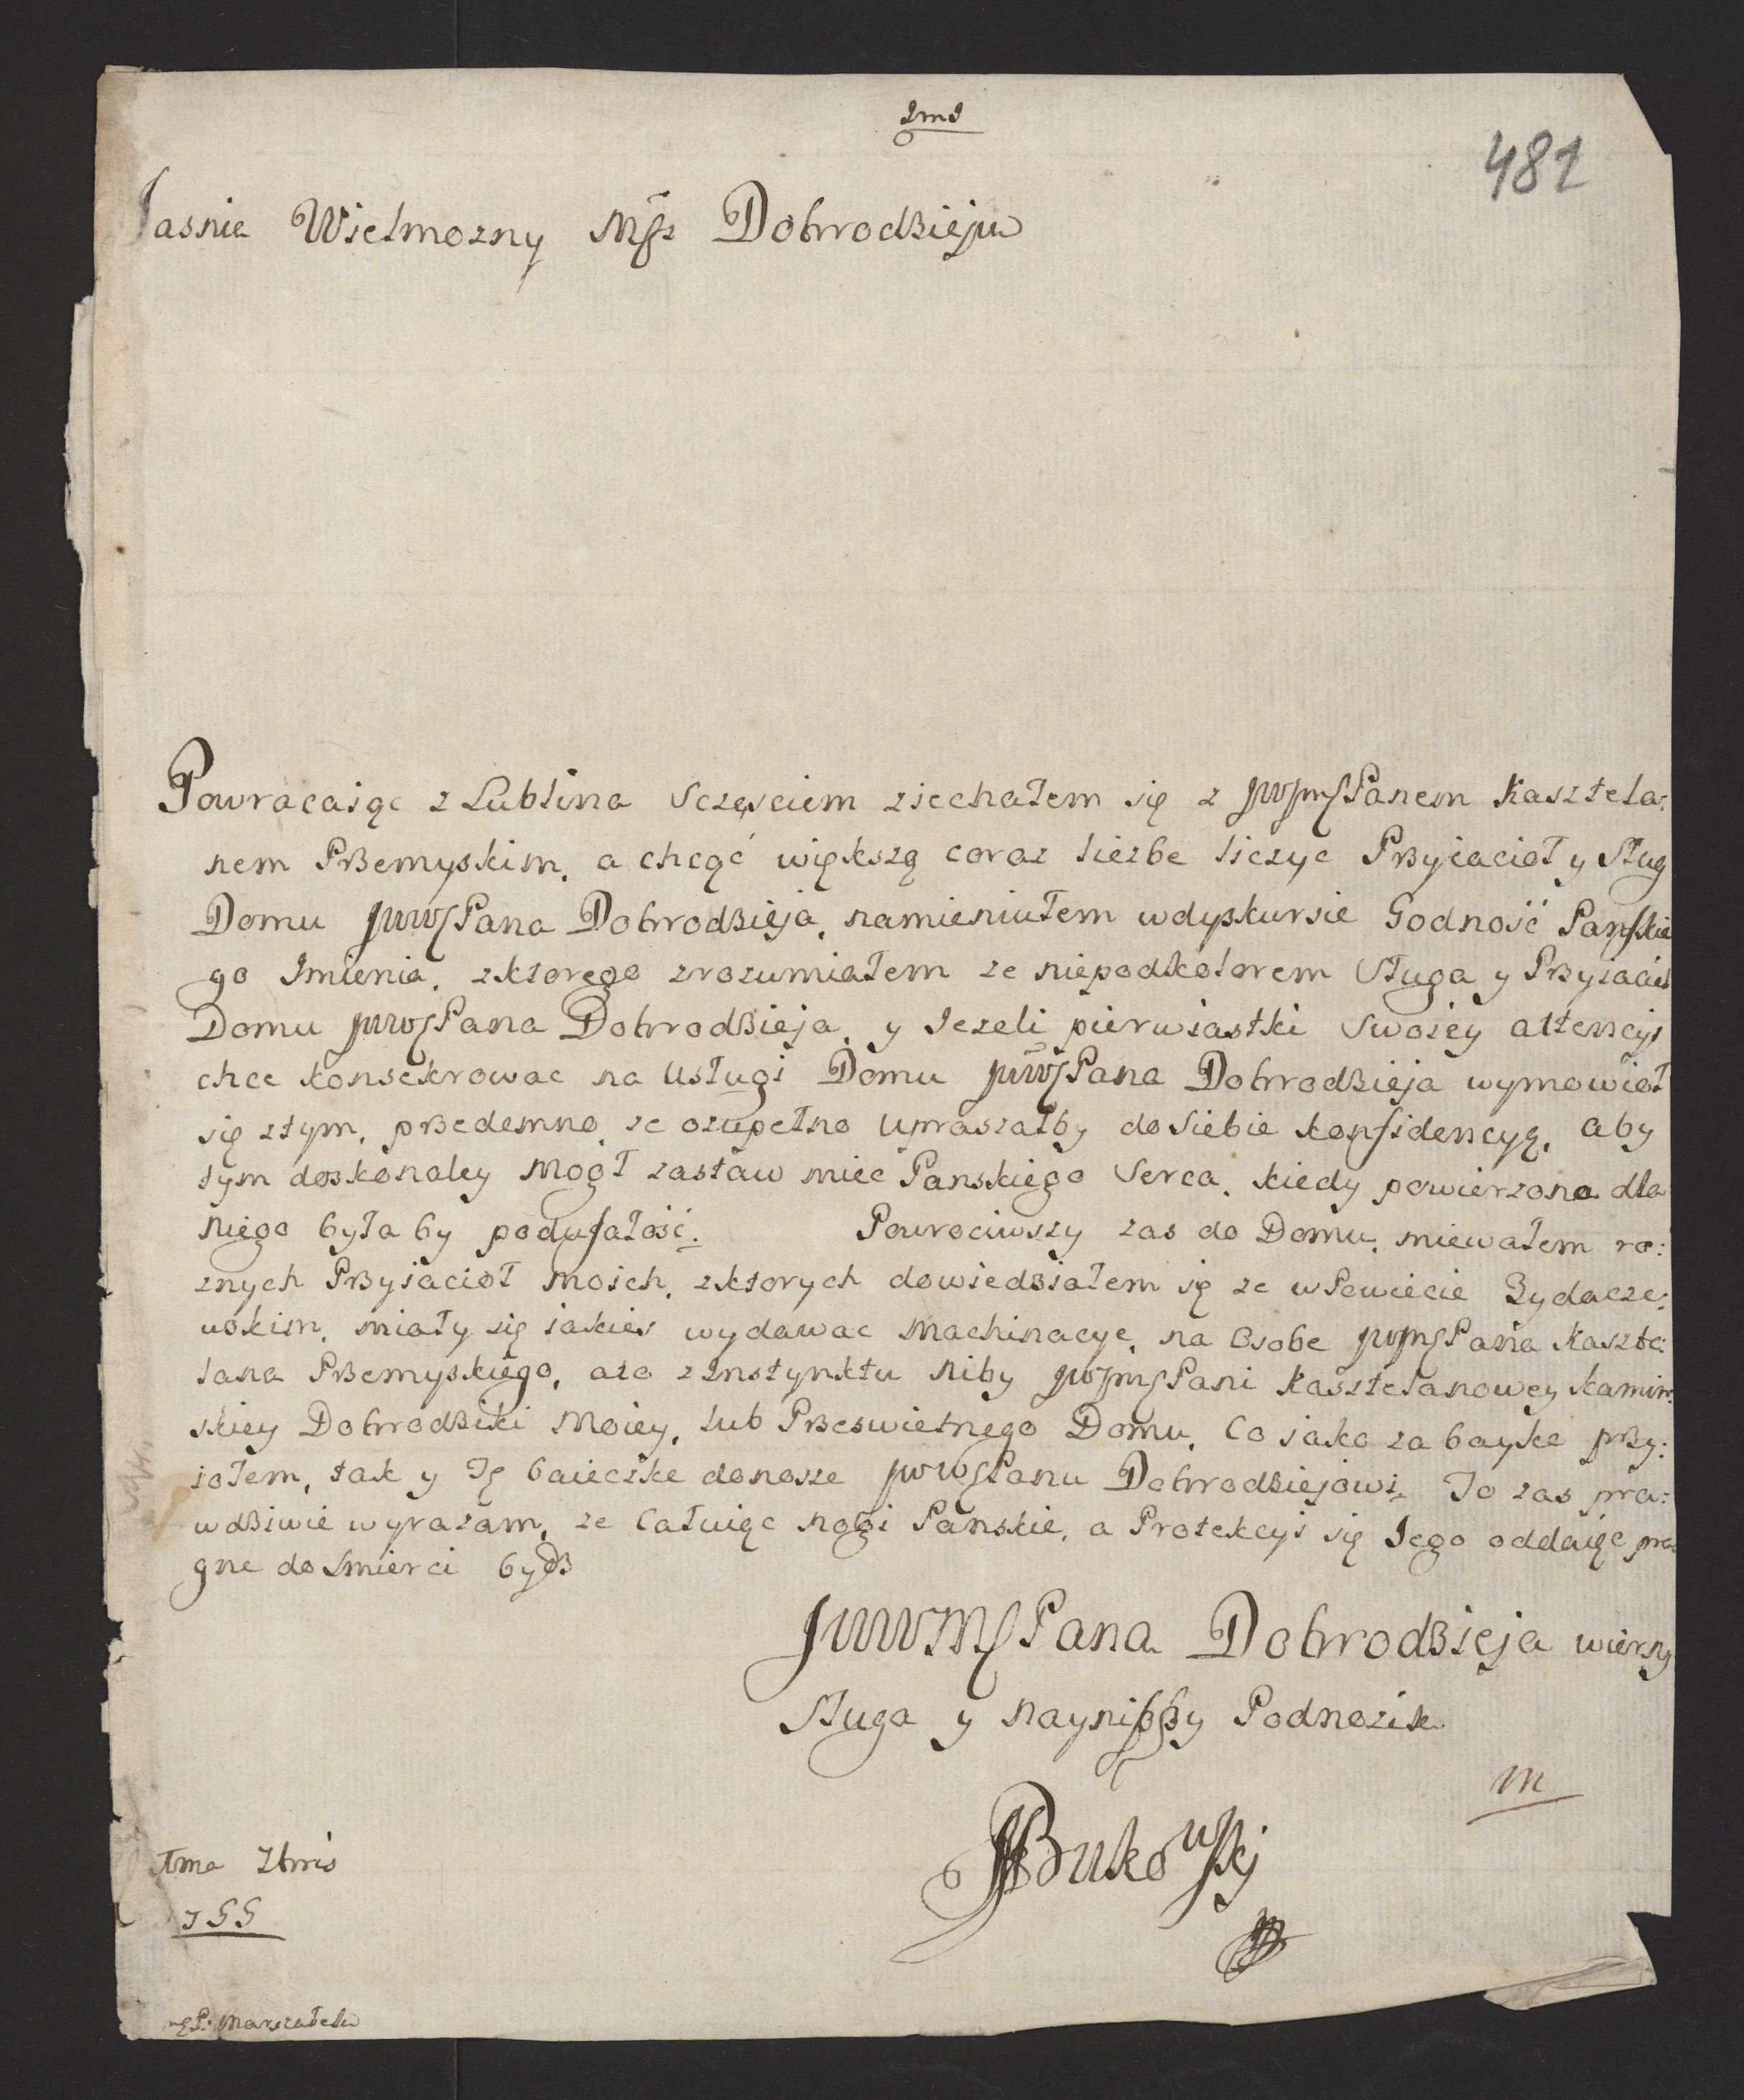 481
Jasnie Wielmozny Mśz Dobrodzieju
Powracaiąc z Lublina Sczęsciem ziechałem się z JWJmśPanem Kasztela:
nem Przemyskim, a chcąć większą coraz liczbe liczyc Przyiacioł y Sług
Domu JWWśPana Dobrodzieja, namieniułem wdyskursie Godność Pańskie
go Imienia, zktorego zrozumiałem ze niepodkolorem Sługa y Przyiaciel
Domu JWWśPana Dobrodzieja, y Jezeli pierwiastki Swoiey attencyi
chce konsekrowac na Usługi Domu JWWśPana Dobrodzieja wymowieł
się ztym, przedemno, ze ozupełno Upraszałby do Siebie konfidencyę, aby
tym doskonaley Mogł zastaw miec Panskiego Serca, kiedy powierzona dla
niego była by podufałość. Powrociwszy zas do Domu, miewałem ro:
znych Przyiacioł Moich, zktorych dowiedziałem się ze w Powiecie Zydacze:
wskim, miały się iakies wydawac Machinacye, na Osobe JWJmśPana Kaszte
lana Przemyskiego, a to z Instynktu niby JWJmśPani Kasztelanowey Kamin:
skiey Dobrodziki Moiey, lub Przeswietnego Domu, Co iako za bayke przy:
iołem, tak y Tę baieczke donosze JWWśPanu Dobrodziejowi. To zas pra:
wdziwie wyrazam, ze Całuięc nogi Panskie, a Protekcyi się Jego oddaięc pra
gne do Smierci bydz
JWWMśPana Dobrodzieja wierny
Sługa y Nayniższy Podnozik
Bukowski
m
Xbris
755
Marszałek